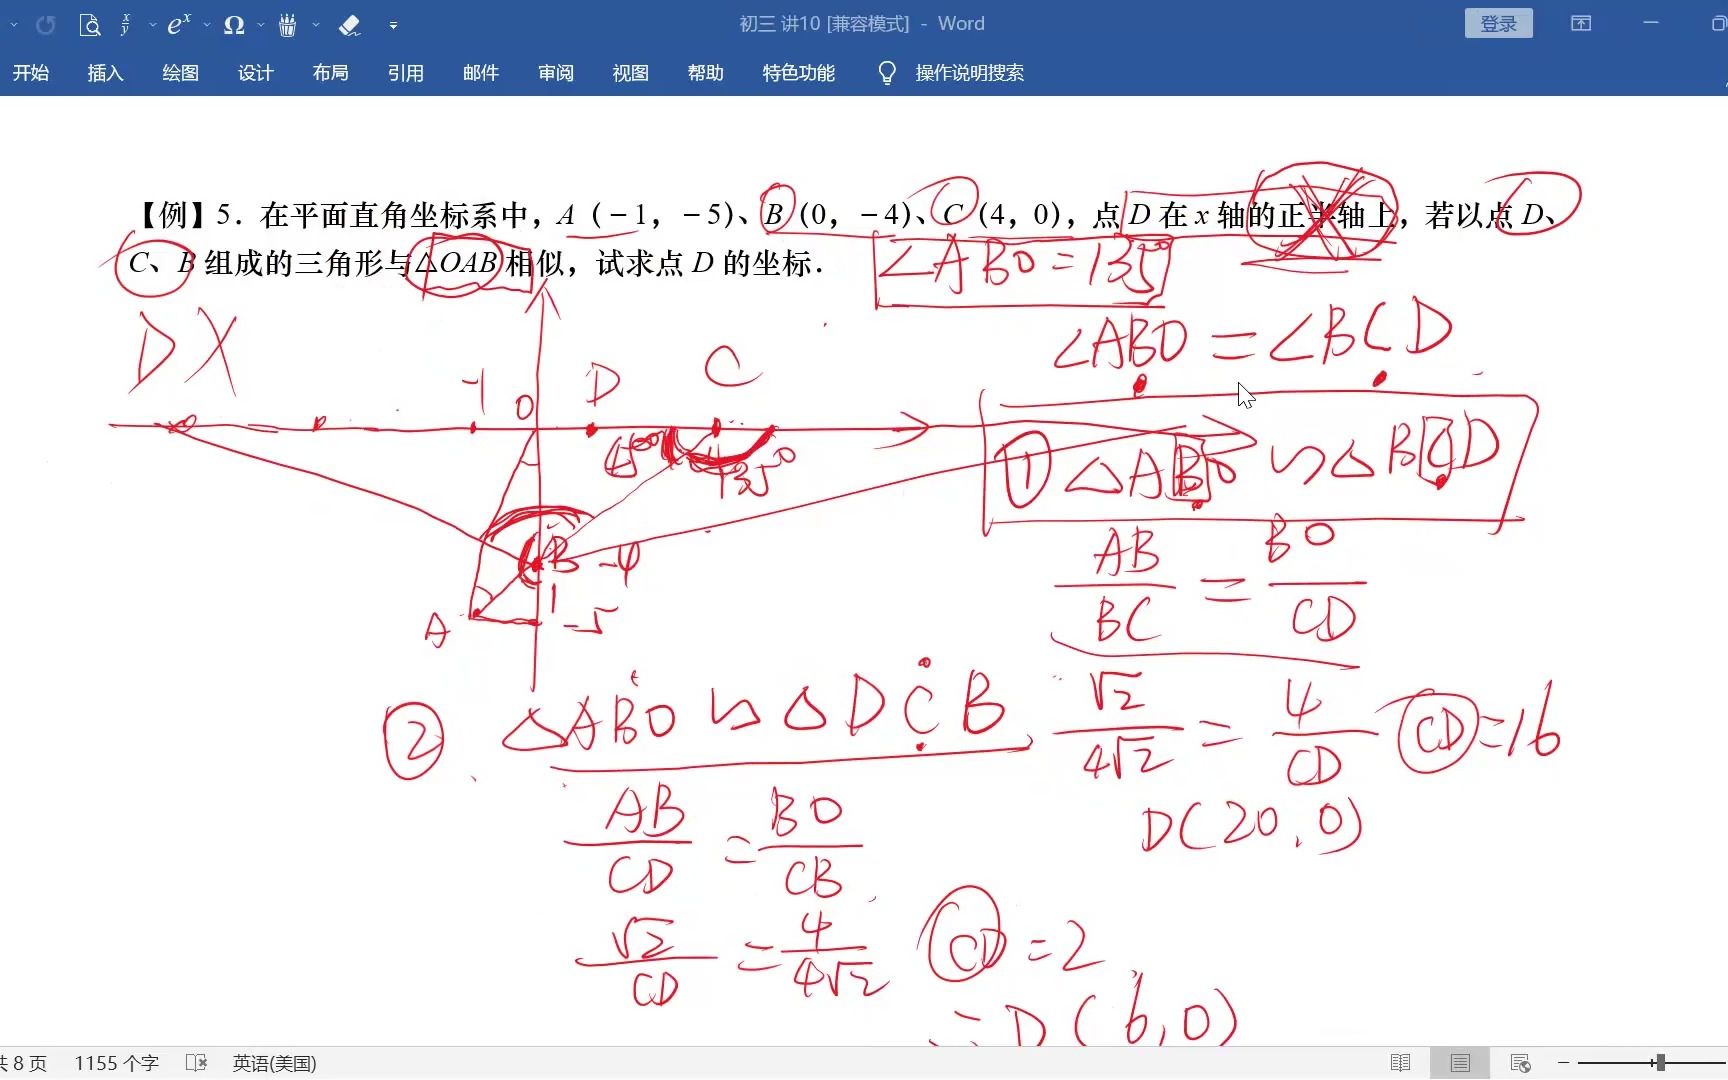 初三 讲10 [兼容模式] - Word
登录
开始 插入 绘图 设计 布局 引用 邮件 审阅 视图 帮助 特色功能 操作说明搜索
【例】5．在平面直角坐标系中，A（－1，－5）、B（0，－4）、C（4，0），点 D 在 x 轴的正半轴上，若以点 D、
C、B 组成的三角形与△OAB 相似，试求点 D 的坐标．
∠ABO=135°
DX
∠ABO=∠BCD
-1 O D C
① △ABO∽△BCD
45° 135°
AB/BC=BO/CD
B -4
1
A -5
② △ABO∽△DCB
√2/4√2=4/CD CD=16
D(20,0)
AB/CD=BO/CB
√2/CD=4/4√2 CD=2
∴D(6,0)
共 8 页 1155 个字 英语(美国)